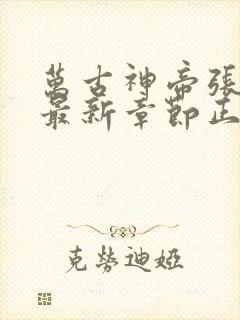 萬古神帝張
最新章節正
克勞迪婭